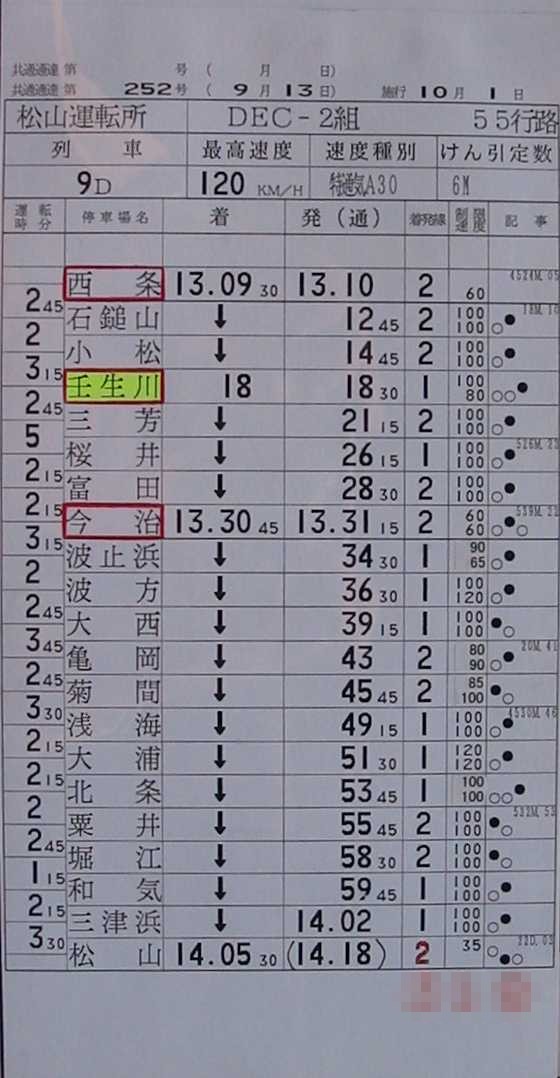 共通通達 第 号 ( 月 日)
共通通達 第 252号 ( 9月13日) 施行 10月 1日
松山運転所 DEC-2組 55行路
列車 最高速度 速度種別 けん引定数
9D 120 KM/H 特通気A30 6M
運転時分 停車場名 着 発(通) 着発線 制限速度 記事
4524M.05
西条 13.09 30 13.10 2 60
2 45
石鎚山 ↓ 12 45 2 100 100 ○●
2
小松 ↓ 14 45 2 100 100 ○●
3 15
壬生川 18 18 30 1 100 80 ○○●
2 45
三芳 ↓ 21 15 2 100 100 ○●
5
桜井 ↓ 26 15 1 100 100 ○●
2 15
富田 ↓ 28 30 2 100 100 ○●
2 15
今治 13.30 45 13.31 15 2 60 60 ○●○
3 15
波止浜 ↓ 34 30 1 90 65 ○●
2
波方 ↓ 36 30 1 100 120 ○●
2 45
大西 ↓ 39 15 1 100 100 ●○
3 45
亀岡 ↓ 43 2 80 90 ○●
2 45
菊間 ↓ 45 45 2 85 100 ●○
3 30
浅海 ↓ 49 15 1 100 100 ○●
2 15
大浦 ↓ 51 30 1 120 120 ○●
2 15
北条 ↓ 53 45 1 100 100 ○○●
2
粟井 ↓ 55 45 2 100 100 ●○
2 45
堀江 ↓ 58 30 2 100 100 ●○
1 15
和気 ↓ 59 45 1 100 100 ○●
2 15
三津浜 ↓ 14.02 1 100 100 ○●
3 30
松山 14.05 30 (14.18) 2 35 ○●○